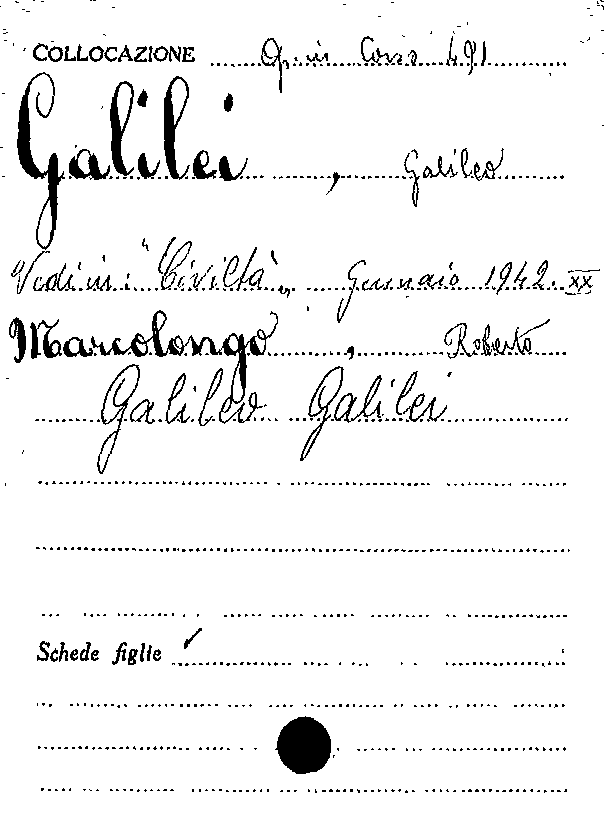 COLLOCAZIONE Op. in Corso 491
Galilei, Galileo
Vedi in: "Civiltà" Gennaio 1942. XX
Marcolongo, Roberto
Galileo Galilei
Schede figlie ✓